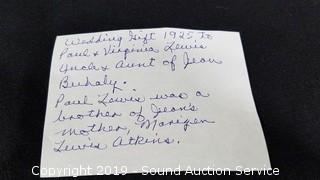 Wedding Gift 1925 to
Paul & Virginia Lewis
Uncle & Aunt of Jean
Buhaly.
Paul Lewis was a
brother of Jean's
mother, Maregen
Lewis Atkins.
Copyright 2019 - Sound Auction Service